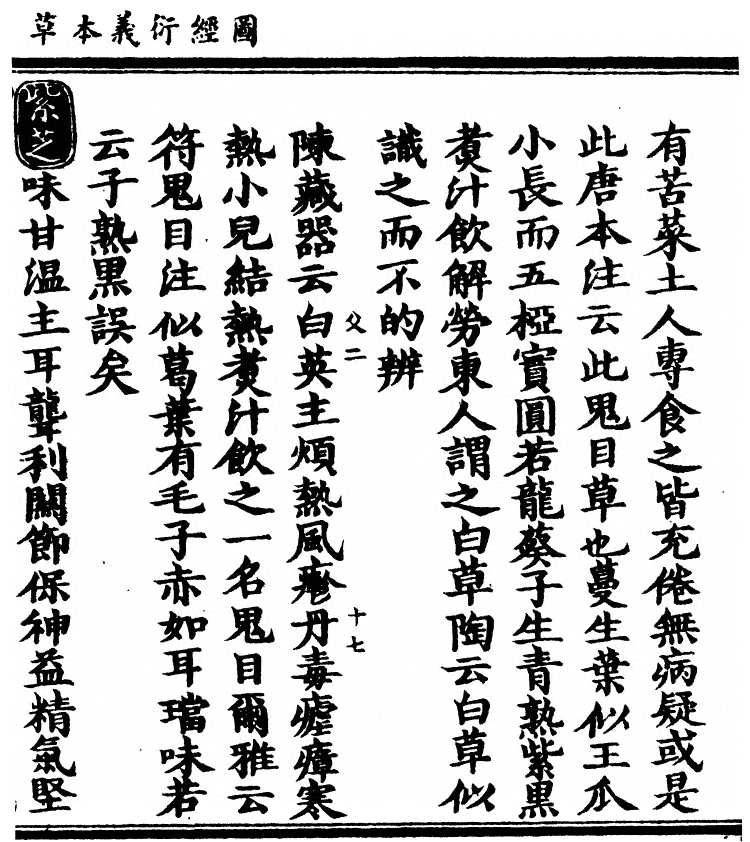 圖經衍義本草
有苦菜土人專食之皆充倦無病疑或是
此唐本注云此鬼目草也蔓生葉似王瓜
小長而五椏實圓若龍葵子生青熟紫黑
煑汁飲解勞東人謂之白草陶云白草似
識之而不的辨
父二
十七
陳藏器云白英主煩熱風𤺋丹毒瘧瘴寒
熱小兒結熱煑汁飲之一名鬼目爾雅云
符鬼目注似葛葉有毛子赤如耳璫味若
云子熟黒誤矣
紫芝味甘溫主耳聾利關節保神益精氣堅